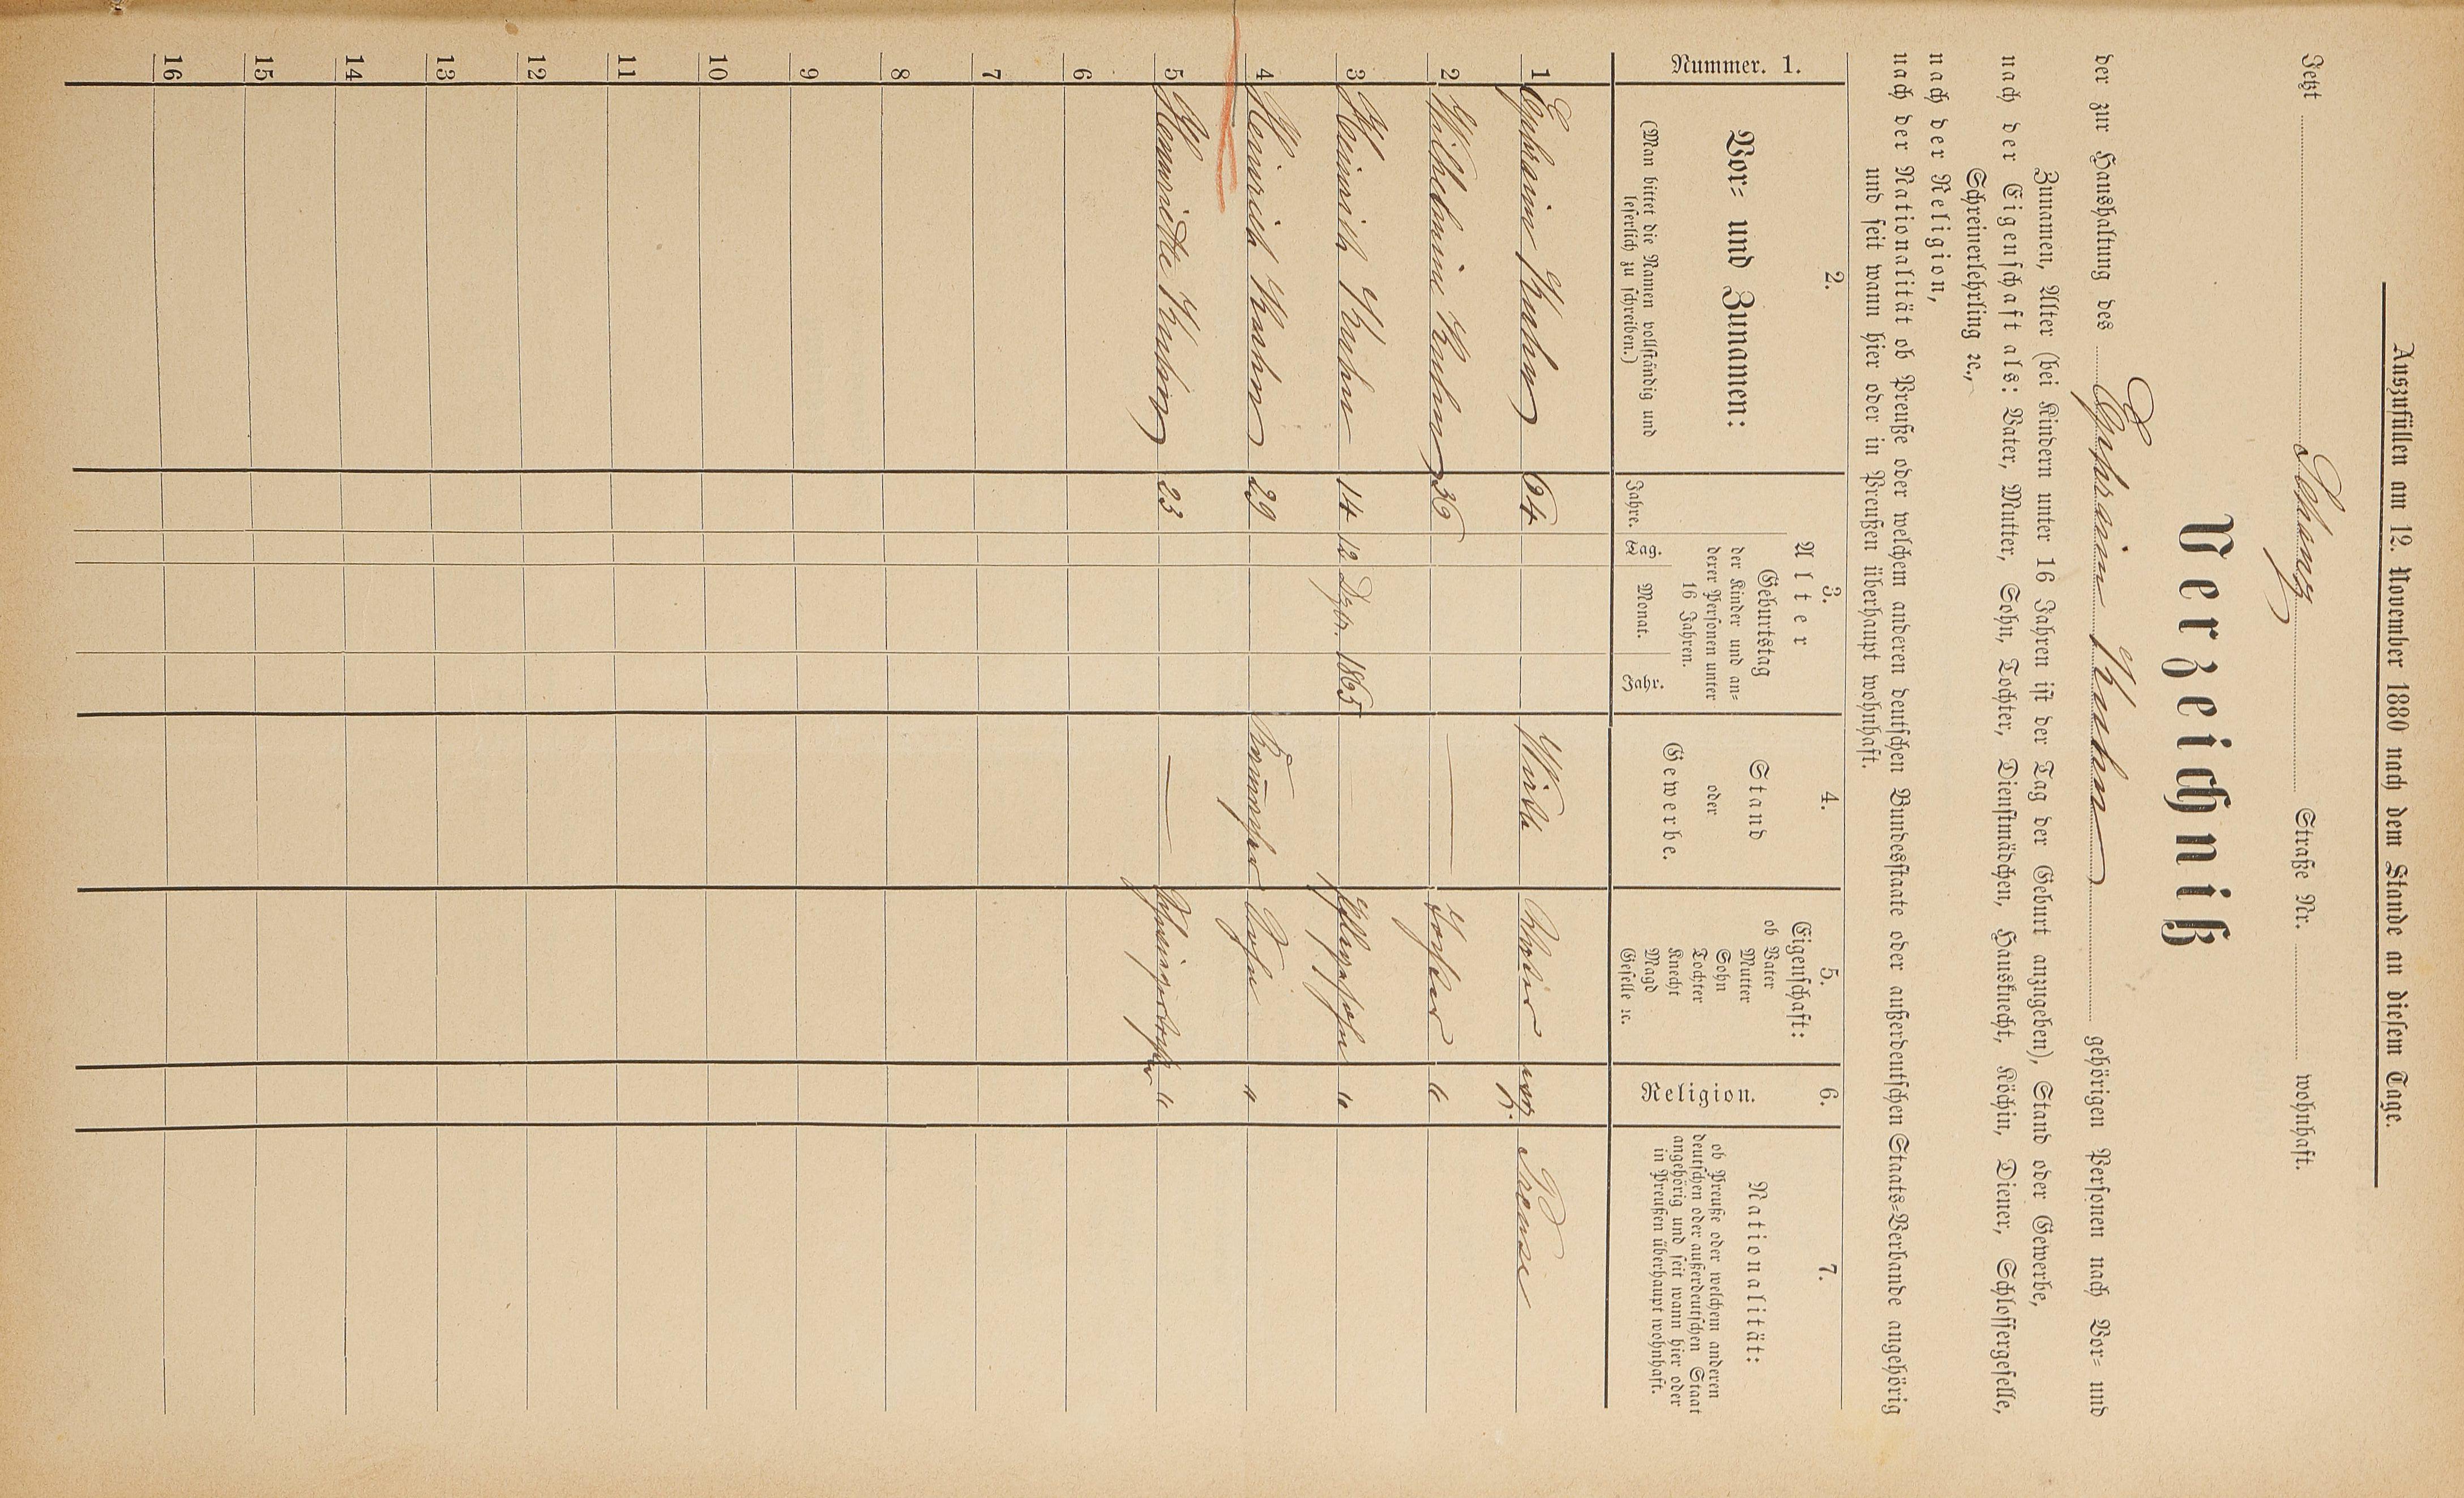 Auszufüllen am 12. November 1880 nach dem Stande an diesem Tage.
Jetzt Schanz Straße Nr. wohnhaft.
Verzeichniß
der zur Haushaltung des Ephraim Kuhn gehörigen Personen nach Vor= und
Zunamen, Alter (bei Kindern unter 16 Jahren ist der Tag der Geburt anzugeben), Stand oder Gewerbe,
nach der Eigenschaft als: Vater, Mutter, Sohn, Tochter, Dienstmädchen, Hausknecht, Köchin, Diener, Schlossergeselle,
Schreinerlehrling ꝛc.,
nach der Religion,
nach der Nationalität ob Preuße oder welchem anderen deutschen Bundesstaate oder außerdeutschen Staats=Verbande angehörig
und seit wann hier oder in Preußen überhaupt wohnhaft.
Nummer. 1.
2.
Vor= und Zunamen:
(Man bittet die Namen vollständig und
leserlich zu schreiben.)
3.
Alter
Jahre.
Geburtstag
der Kinder und an=
derer Personen unter
16 Jahren.
Tag. Monat. Jahr.
4.
Stand
oder
Gewerbe.
5.
Eigenschaft:
ob Vater
Mutter
Sohn
Tochter
Knecht
Magd
Geselle ꝛc.
6.
Religion.
7.
Nationalität:
ob Preuße oder welchem anderen
deutschen oder außerdeutschen Staat
angehörig und seit wann hier oder
in Preußen überhaupt wohnhaft.
1 Ephraim Kuhn 64 Wirth Vater Preuße
2 Wilhelmine Kuhn 36 — Tochter "
3 Heinrich Kuhn 14 12 Dzbr. 1865 Pflegesohn "
4 Heinrich Kuhn 29 Sohn "
5 Henriette Kuhn 23 — Schwiegertochter "
6
7
8
9
10
11
12
13
14
15
16